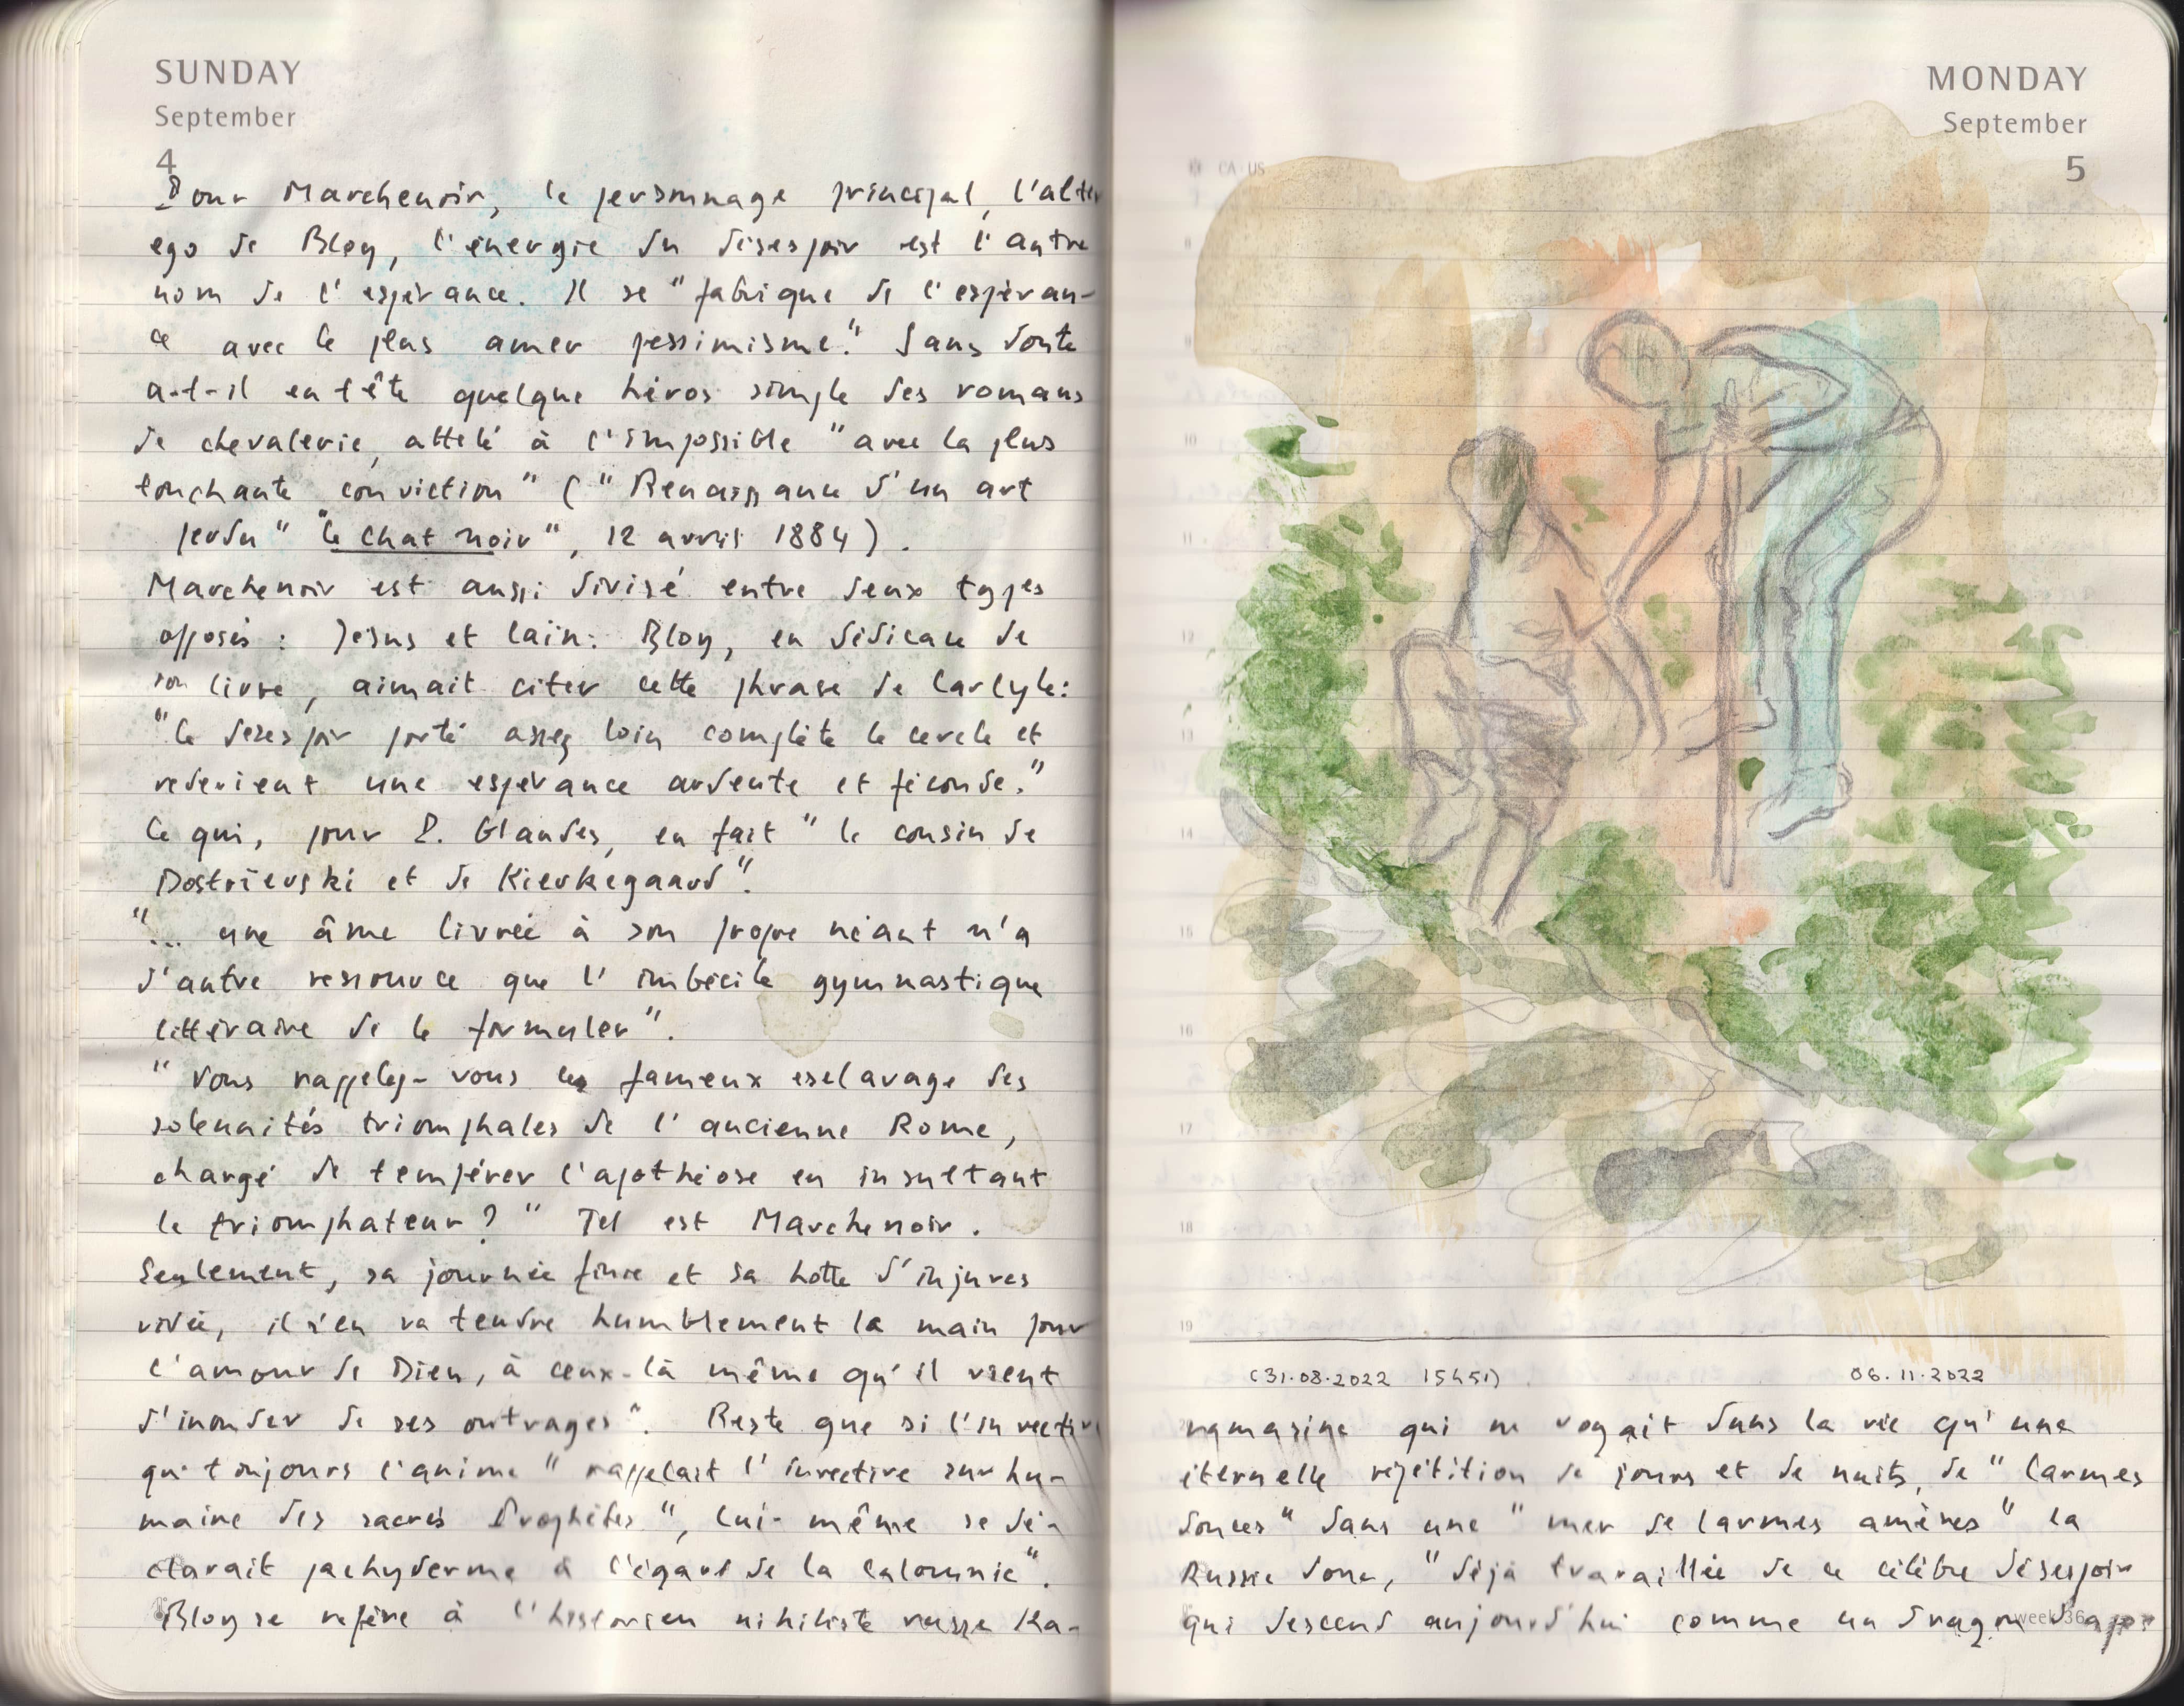 SUNDAY
September
4
Pour Marchenoir, le personnage principal, l'alter
ego de Bloy, l'énergie du désespoir est l'autre
nom de l'espérance. Il se "fabrique de l'espéran-
ce avec le plus amer pessimisme". Sans doute
a-t-il en tête quelque héros simple des romans
de chevalerie, attelé à l'impossible "avec la plus
touchante conviction" ("Renaissance d'un art
perdu" "le Chat noir", 12 avril 1884).
Marchenoir est aussi divisé entre deux types
opposés : Jésus et Caïn. Bloy, en dédicace de
son livre, aimait citer cette phrase de Carlyle:
"le désespoir porté assez loin complète le cercle et
redevient une espérance ardente et féconde."
Ce qui, pour P. Glaudes, en fait "le cousin de
Dostoïevski et de Kierkegaard".
"... une âme livrée à son propre néant n'a
d'autre ressource que l'imbécile gymnastique
littéraire de le formuler".
"Vous rappelez-vous les fameux esclavage des
solennités triomphales de l'ancienne Rome,
chargé de tempérer l'apothéose en insultant
le triomphateur?" Tel est Marchenoir.
Seulement, sa journée finie et sa hotte d'injures
vidée, il s'en va tendre humblement la main pour
l'amour de Dieu, à ceux-là même qu'il vient
d'inonder de ses outrages". Reste que si l'invective
qui toujours l'anime "rappelait l'invective surhu-
maine des sacrés Prophètes", lui-même se dé-
clarait pachyderme à l'égard de la calomnie".
Bloy se réfère à l'historien nihiliste russe Ka-
MONDAY
September
5
CA US
8
9
10
11
12
13
14
15
16
17
18
19
(31.08.2022 15h51) 06.11.2022
ramasine qui ne voyait dans la vie qu'une
éternelle répétition de jours et de nuits, de "larmes
douces" dans une "mer de larmes amères" la
Russie donc, "déjà travaillée de ce célèbre désespoir
qui descend aujourd'hui comme un dragon d'apo-
week 36